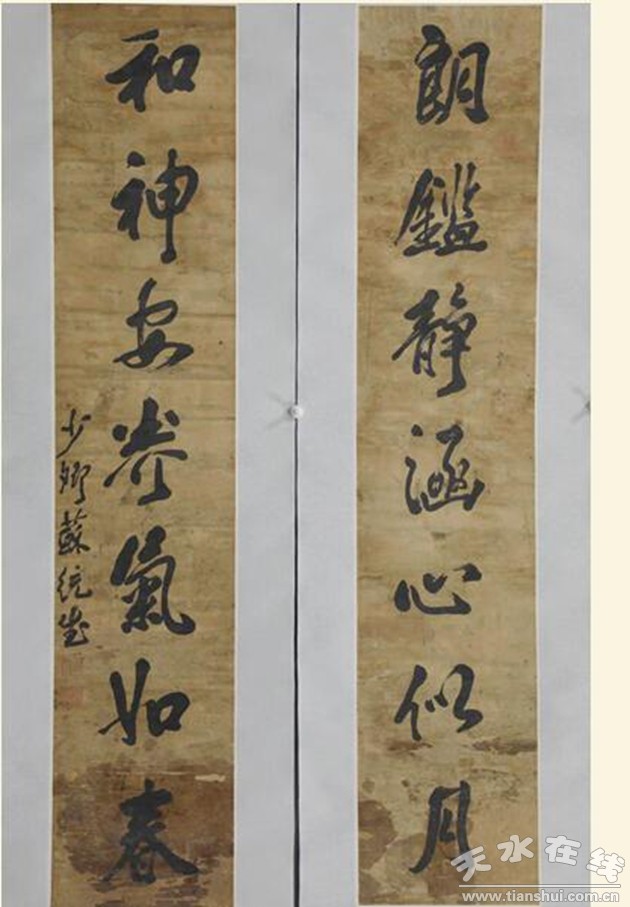 朗鑑靜涵心似月
和神安养氣如春
少卿蘇統武
天水在线
www.tianshui.com.cn